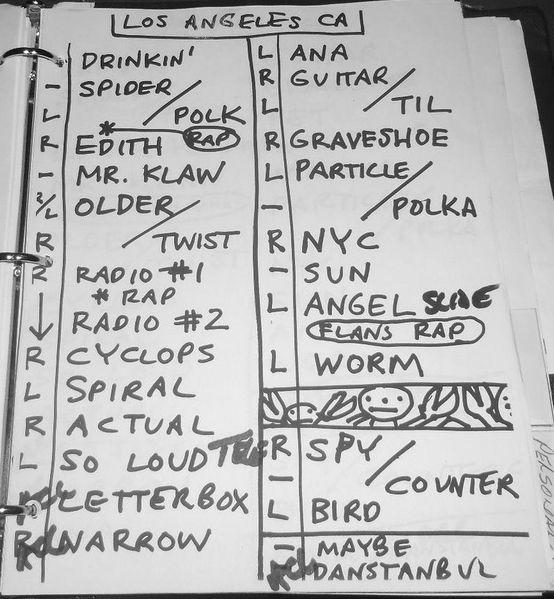 LOS ANGELES CA
DRINKIN'
- SPIDER/
L POLK
R EDITH * RAP
- MR. KLAW
R/L OLDER/
R TWIST
R RADIO #1
* RAP
RADIO #2
R CYCLOPS
L SPIRAL
R ACTUAL
L SO LOUD
LETTERBOX
NARROW
L ANA
R GUITAR/
L TIL
R GRAVESHOE
L PARTICLE/
- POLKA
R NYC
- SUN
L ANGEL
FLANS RAP
L WORM
R SPY/
- COUNTER
L BIRD
- MAYBE
DANSTANBUL